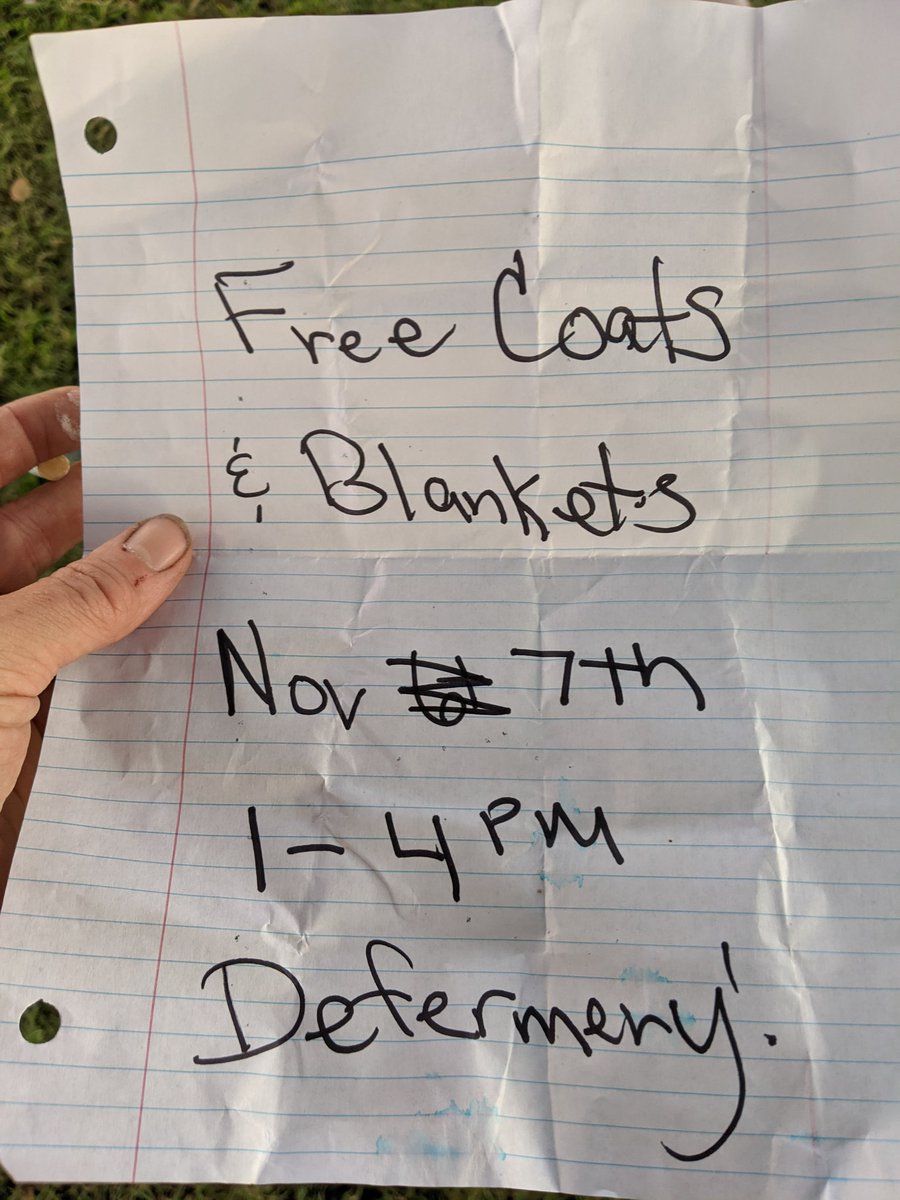 Free Coats
& Blankets
Nov 7th
1-4 PM
Defermeny.